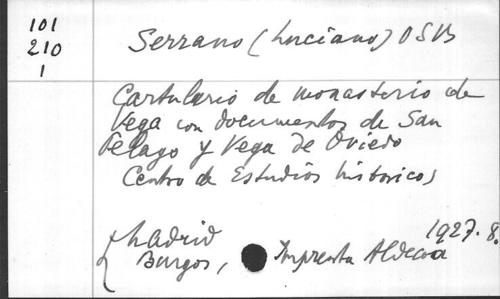 101
210
1
Serrano (Luciano) OSB
Cartulario de monasterio de
Vega con documentos de San
Pelayo y Vega de Oviedo
Centro de Estudios históricos
Madrid
Burgos, Imprenta Aldecoa 1927. 8.